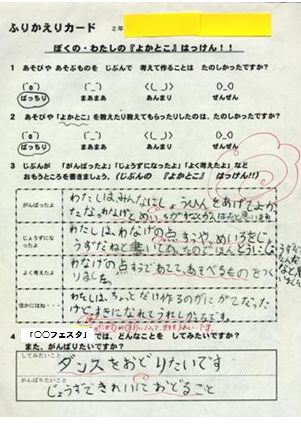 ふりかえりカード 2年
ぼくの・わたしの『よかとこ』はっけん!!
1 あそびや あそぶものを じぶんで 考えて作ることは たのしかったですか?
(^o^) (^_^) <(_ _)> (>_<)
ばっちり まあまあ あんまり ぜんぜん
2 あそびや「よかとこ」を教えたり教えてもらったりしたのは、たのしかったですか?
(^o^) (^_^) <(_ _)> (>_<)
ばっちり まあまあ あんまり ぜんぜん
3 じぶんが 「がんばったよ」「じょうずになったよ」「よく考えたよ」など
おもうところを書きましょう。(じぶんの 『よかとこ』 はっけん!!)
がんばったよ
わたしは、みんなにしょうひんをあげてよかったな。
じょうずになったよ
わたしは、わなげの点すうや、めいろをじょうずだねと書いてあったので
よく考えたよ
わなげの点すうで、あそべるものをつくりました。
ほかにはね・・
わたしは、ちょっとだけ作るのがにがてだったけどすきになれてうれしかったです。
4 「〇〇フェスタ」では、どんなことを してみたいですか?
また、がんばりたいですか?
してみたいこと
ダンスをおどりたいです
がんばりたいこと
じょうずできれいにおどること